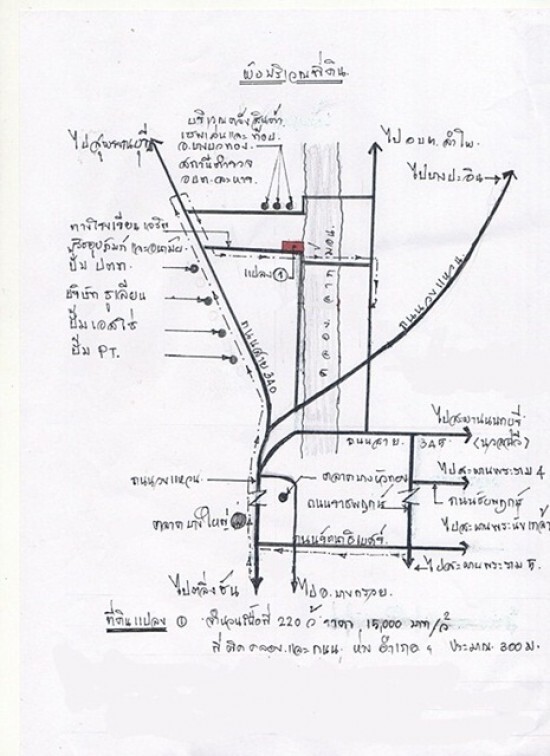 ผังบริเวณที่ดิน
บริเวณตั้งสินค้า
ไปสุพรรณบุรี
อ.บางบัวทอง
สถานีตำรวจ
ไป อบท. ลำโพ
ไปบางปะอิน
ทางโรงเรียน
ปั๊ม ปตท.
บริษัท ซูเลียน
ปั๊มเอสโซ่
ปั๊ม PT.
แปลง ①
คลองลากฆ้อน
ถนนวงแหวน
ถนนสาย 340
ไปสะพานนนทบุรี
(นวลฉวี)
ถนนสาย 345
ไปสะพานพระราม 4
ถนนวงแหวน
ตลาดบางบัวทอง
ถนนราชพฤกษ์
ถนนชัยพฤกษ์
ตลาดบางใหญ่
ไปสะพานพระนั่งเกล้า
ถนนรัตนาธิเบศร์
ไปสะพานพระราม 5
ไปตลิ่งชัน
ไป อ.บางกรวย
ที่ดินแปลง ① จำนวนเนื้อที่ 220 ว ราคา 15,000 บาท/ว
ที่ติดคลองและถนน ห่างอำเภอฯ ประมาณ 300 ม.